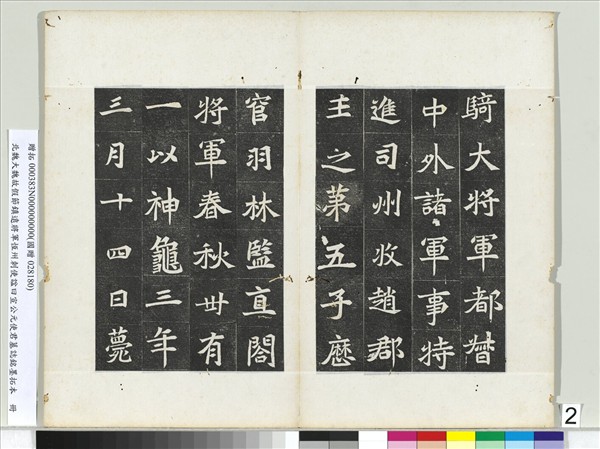 騎大將軍都督
中外諸軍事特
進司州牧趙郡
王之苐五子歷
官羽林監直閤
將軍春秋卅有
一以神龜三年
三月十四日薨
贈拓 000383N000000000(國贈 028180)
北魏大魏故假節鎮遠將軍恆州刺使諡曰宣公元使君墓誌銘墨拓本 冊
2